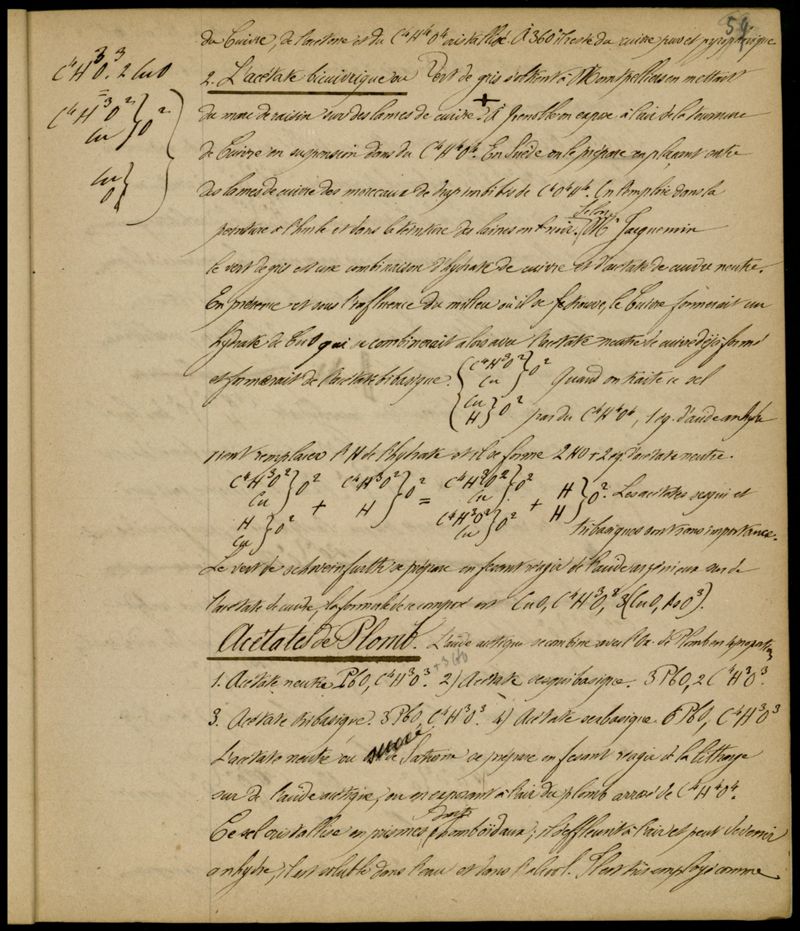 54
du Cuivre, de l'acétone et du C⁴H⁴O⁴ cristallisé. À 360 il reste du cuivre pur et pyrophorique
C⁴H³O³. 2 CuO
2. L'acétate bicuivrique ou Vert de gris s'obtient à Montpellier en mettant
C⁴H³O² } O²
Cu
du marc de raisin sur des lames de cuivre. + À Grenoble on expose à l'air de la tournure
Cu }
O
de Cuivre en suspension dans du C⁴H⁴O⁴. En Suède on le prépare en plaçant entre
des lames de cuivre des morceaux de drap imbibés de C⁴O⁴H⁴. On l'emploie dans la
peinture à l'huile et dans la teinture des laines en noir. Selon M. Jacquemin
le vert de gris est une combinaison d'hydrate de cuivre et d'acétate de cuivre neutre.
En présence et sous l'influence du milieu où il se trouve, le Cuivre formerait un
hydrate de CuO qui se combinerait alors avec l'acétate neutre de cuivre déjà formé
et formerait de l'acétate bibasique. { C⁴H³O² Cu } O² Quand on traite ce sel
{ Cu H } O² par du C⁴H⁴O⁴, 1 éq. d'acide anhydre
vient remplacer l'H de l'hydrate et il se forme 2 HO + 2 éq. d'acétate neutre.
C⁴H³O² Cu } O² C⁴H³O² C⁴H³O² Cu } O² H
H Cu } O² + H } O² = C⁴H³O² Cu } O² + H } O². Les acétates sesqui et
tribasiques sont sans importance.
Le vert de schweinfurth se prépare en fesant réagir de l'acide arsénieux sur de
l'acétate de cuivre, la formule de ce composé est CuO, C⁴H³O³, 3(CuO, AsO³).
Acétates de Plomb. L'acide acétique se combine avec l'Ox. de Plomb en 4 proportions
+ 3 HO
1. Acétate neutre PbO, C⁴H³O³. 2) Acétate sesquibasique. 3 PbO, 2 C⁴H³O³.
3. Acétate tribasique. 3 PbO, C⁴H³O³ 4) Acétate sexbasique. 6 PbO, C⁴H³O³
L'acétate neutre ou sucre de Saturne se prépare en fesant réagir de la litharge
sur de l'acide acétique, ou en exposant à l'air du plomb arrosé de C⁴H⁴O⁴.
Ce sel cristallise en prismes droits rhomboïdaux; il s'effleurit à l'air et peut devenir
anhydre, il est soluble dans l'eau et dans l'alcool. Il est très employé comme